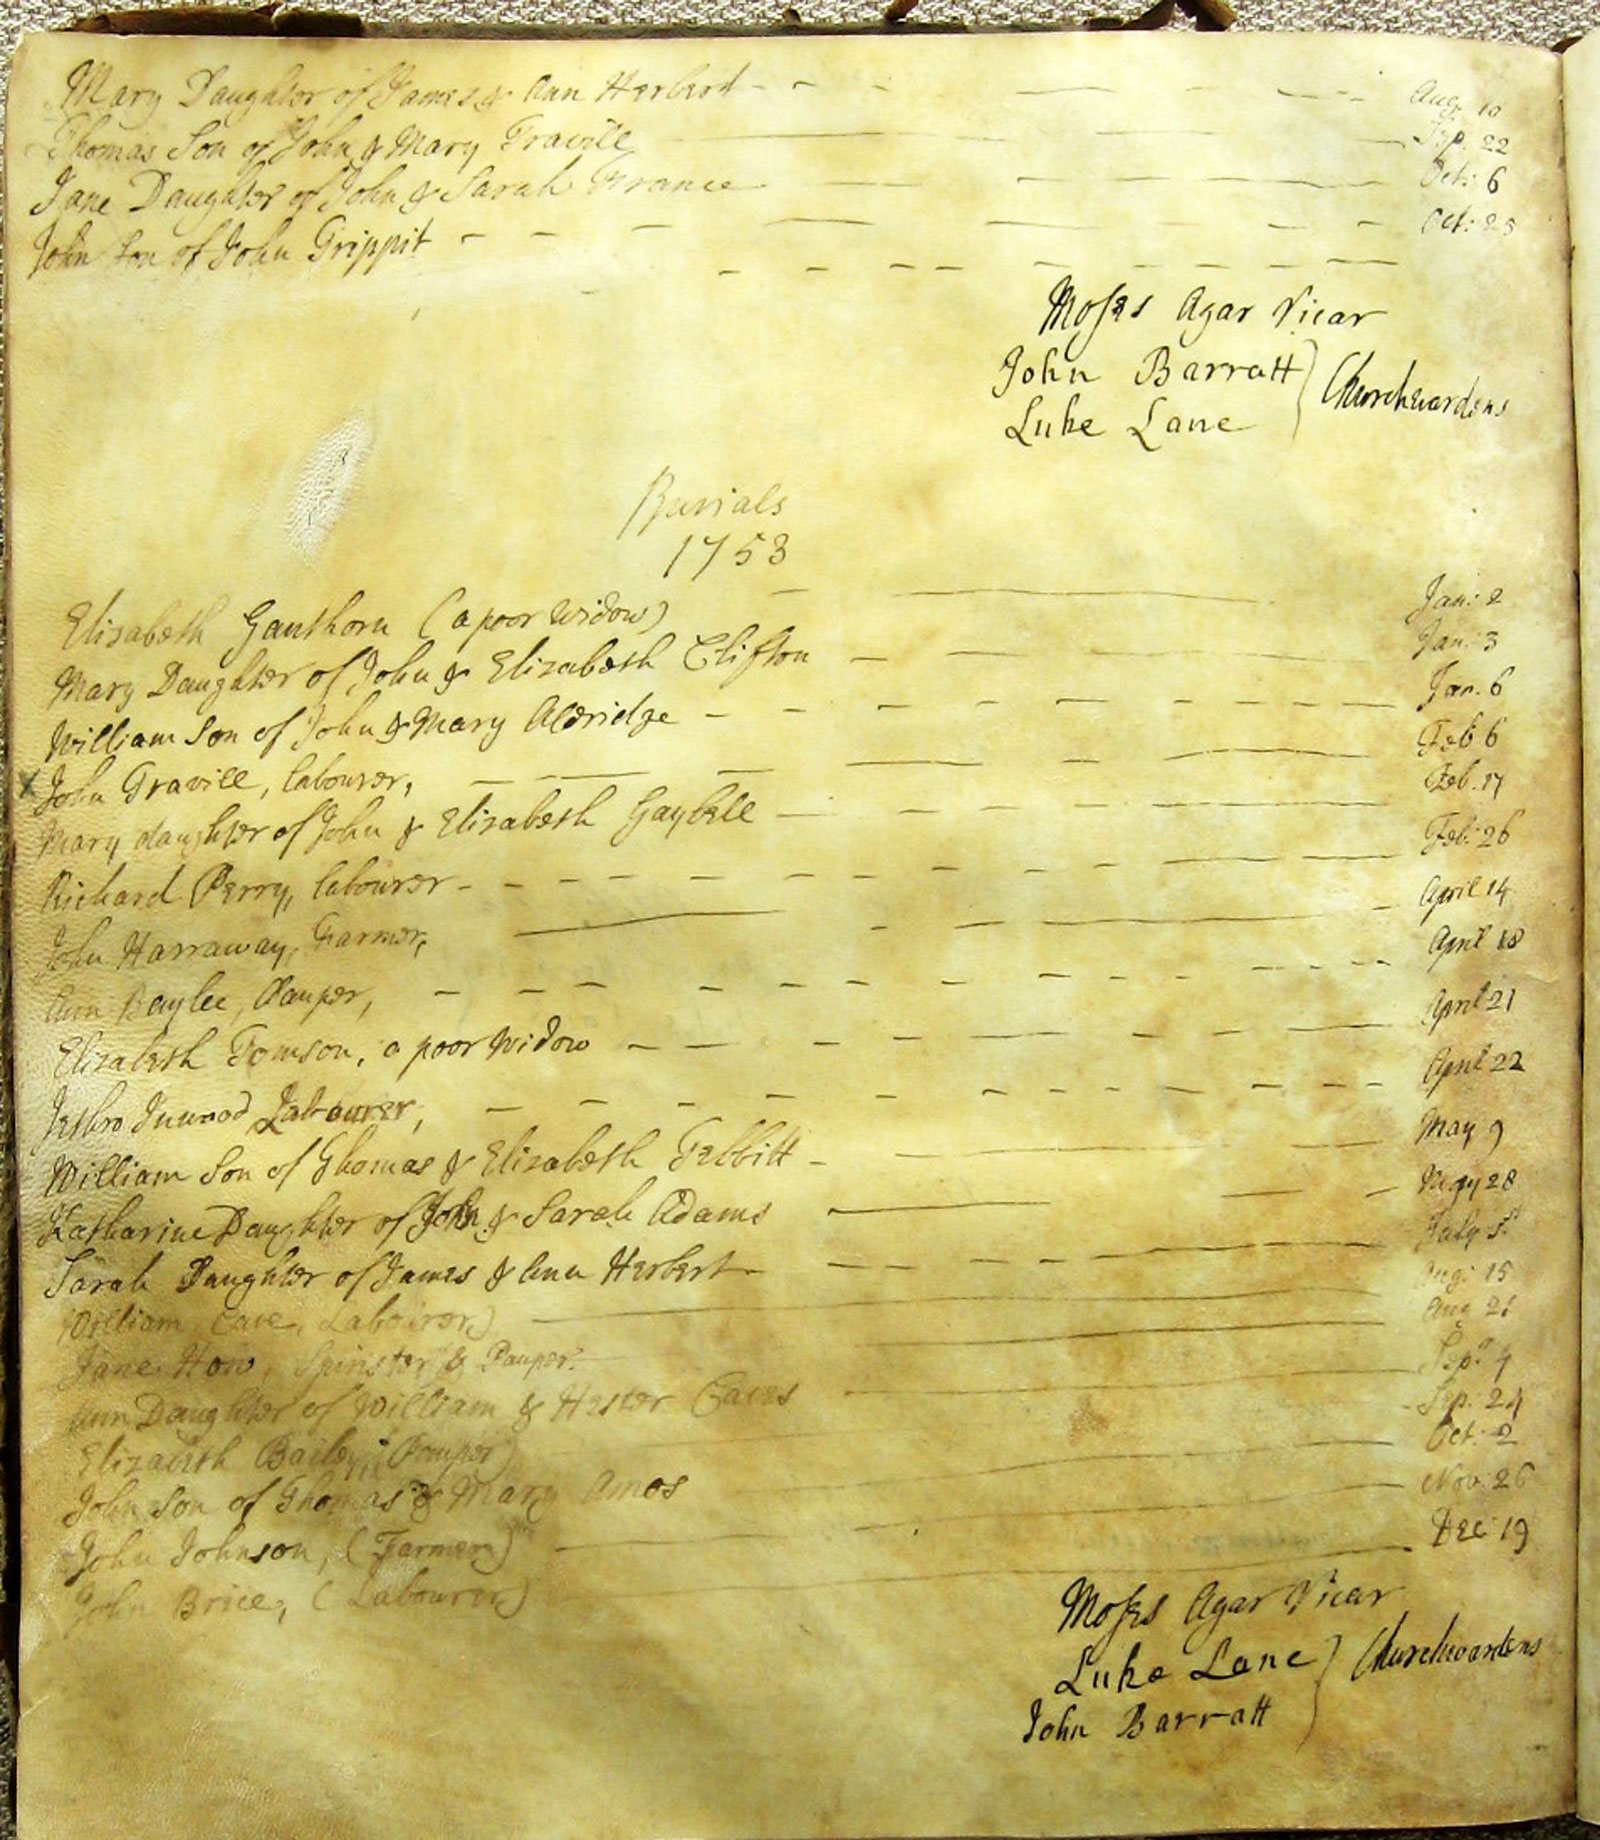 Mary Daughter of James & Ann Herbert - - - Aug. 10
Thomas Son of John & Mary Gravill Sep. 22
Jane Daughter of John & Sarah France Oct: 6
John Son of John Grippit - - - Oct: 23
Moses Agar Vicar
John Barratt } Churchwardens
Luke Lane
Burials
1753
Elisabeth Ganthorn (a poor widow) Jan: 2
Mary Daughter of John & Elizabeth Clifton Jan: 3
William Son of John & Mary Aldridge - - - Jan. 6
x John Gravill, labourer, Feb 6
Mary daughter of John & Elisabeth Gaybell Feb. 17
Richard Perry, labourer - - - Feb: 26
John Harraway, Farmer, April 14
Ann Baylee, Pauper, - - - April 18
Elizabeth Tomson, a poor widow - - - April 21
Jethro Inwood Labourer, - - - April 22
William Son of Thomas & Elisabeth Tebbitt - May 9
Katharine Daughter of John & Sarah Adams May 28
Sarah Daughter of James & Ann Herbert - - - July
William Cave, Labourer) Aug: 15
Jane How, Spinster & Pauper. Aug 21
Ann Daughter of William & Hester Caves Sept.
Elizabeth Bailey, (Pauper) Sep: 24
John Son of Thomas & Mary Amos Oct: 2
John Johnson, (Farmer) Nov: 26
John Brice, (Labourer) Dec: 19
Moses Agar Vicar
Luke Lane } Churchwardens
John Barratt